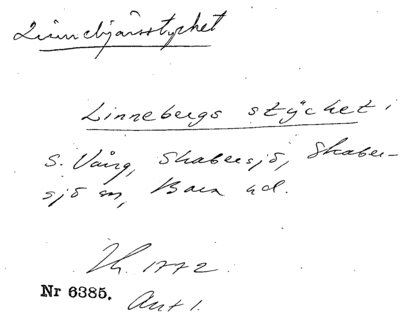 Linnebjärsstycket
Linnebergs stycket i
S. Vång, Skabersjö, Skaber-
sjö sn, Bara hd.
Th. 1772.
Nr 6385. Ant 1.